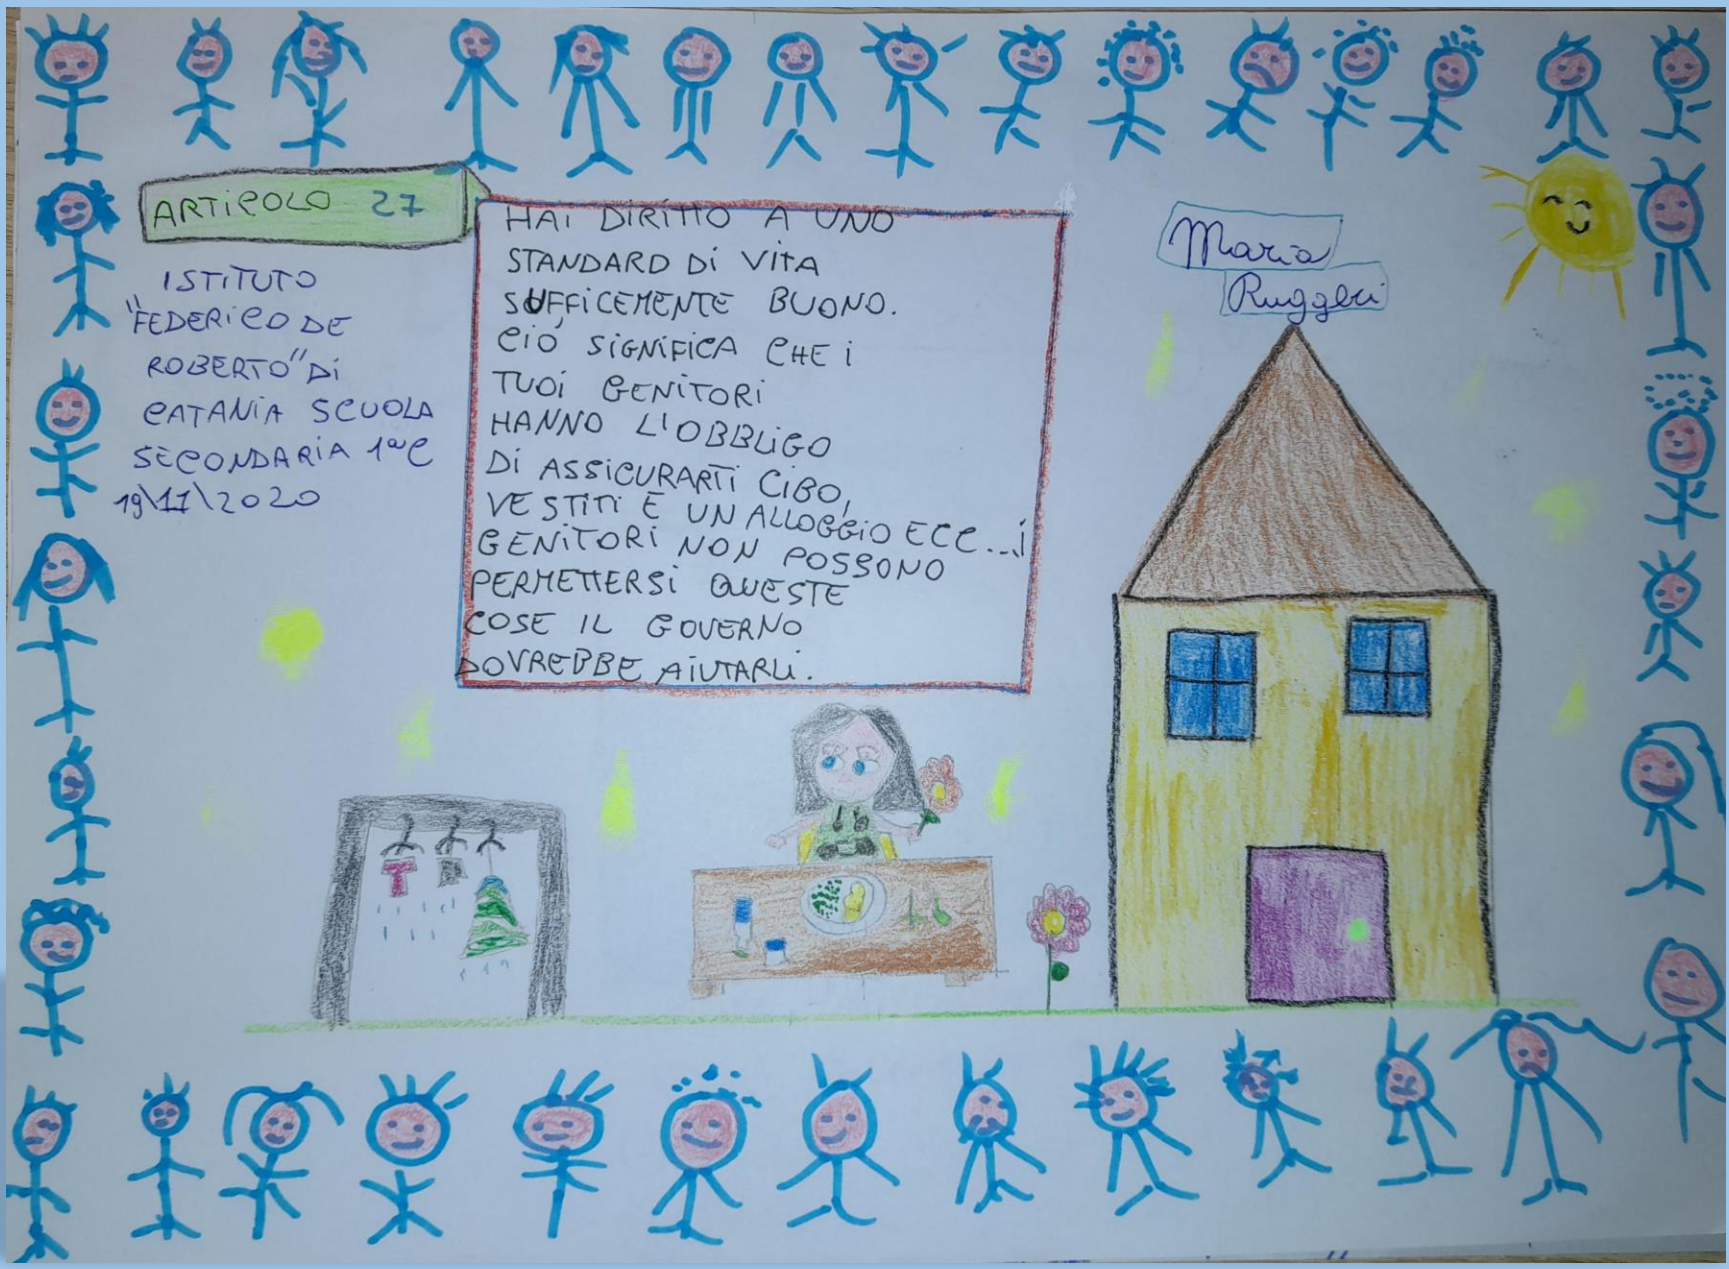 ARTICOLO 27
ISTITUTO
"FEDERICO DE
ROBERTO" DI
CATANIA SCUOLA
SECONDARIA 1ªC
19\11\2020
HAI DIRITTO A UNO
STANDARD DI VITA
SUFFICEMENTE BUONO.
CIÓ SIGNIFICA CHE I
TUOI GENITORI
HANNO L'OBBLIGO
DI ASSICURARTI CIBO,
VESTITI E UN ALLOGGIO ECC...I
GENITORI NON POSSONO
PERMETTERSI QUESTE
COSE IL GOVERNO
DOVREBBE AIUTARLI.
Maria
Ruggeri